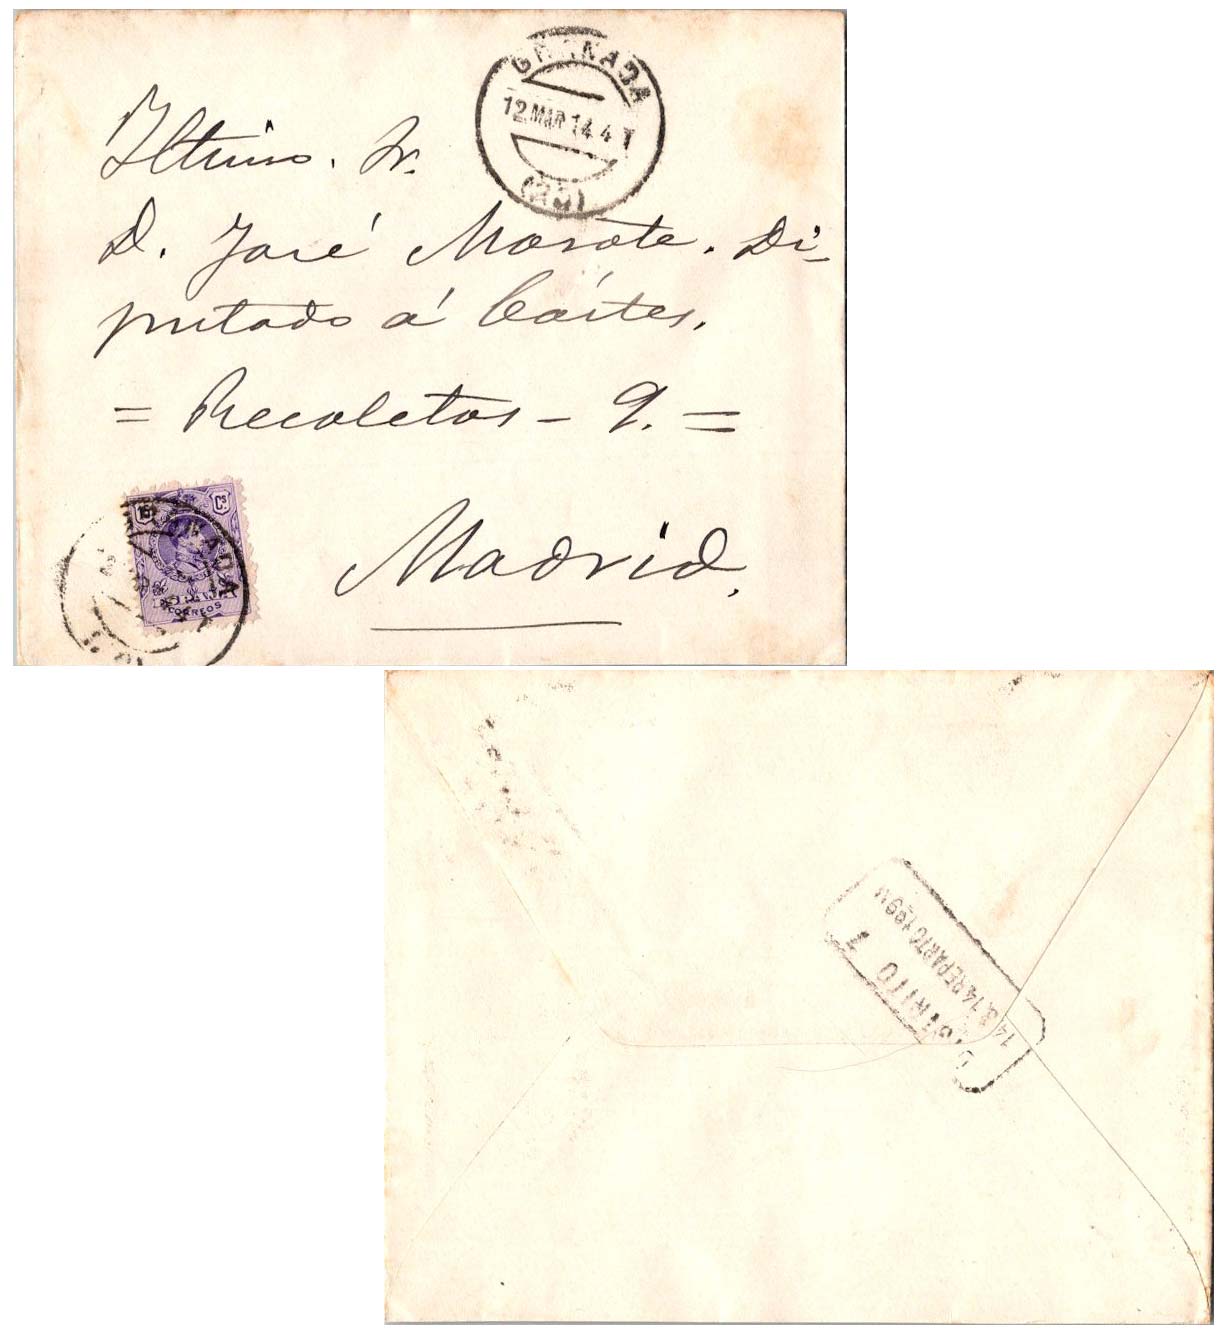 GRANADA
12 MAR 14 4 T
(25)
Iltmo. Sr.
D. José Morote. Di-
putado á Cortes.
= Recoletos - 9. =
Madrid.
15 Cs
CORREOS
DISTRITO 7
14 3. 14 REPARTO